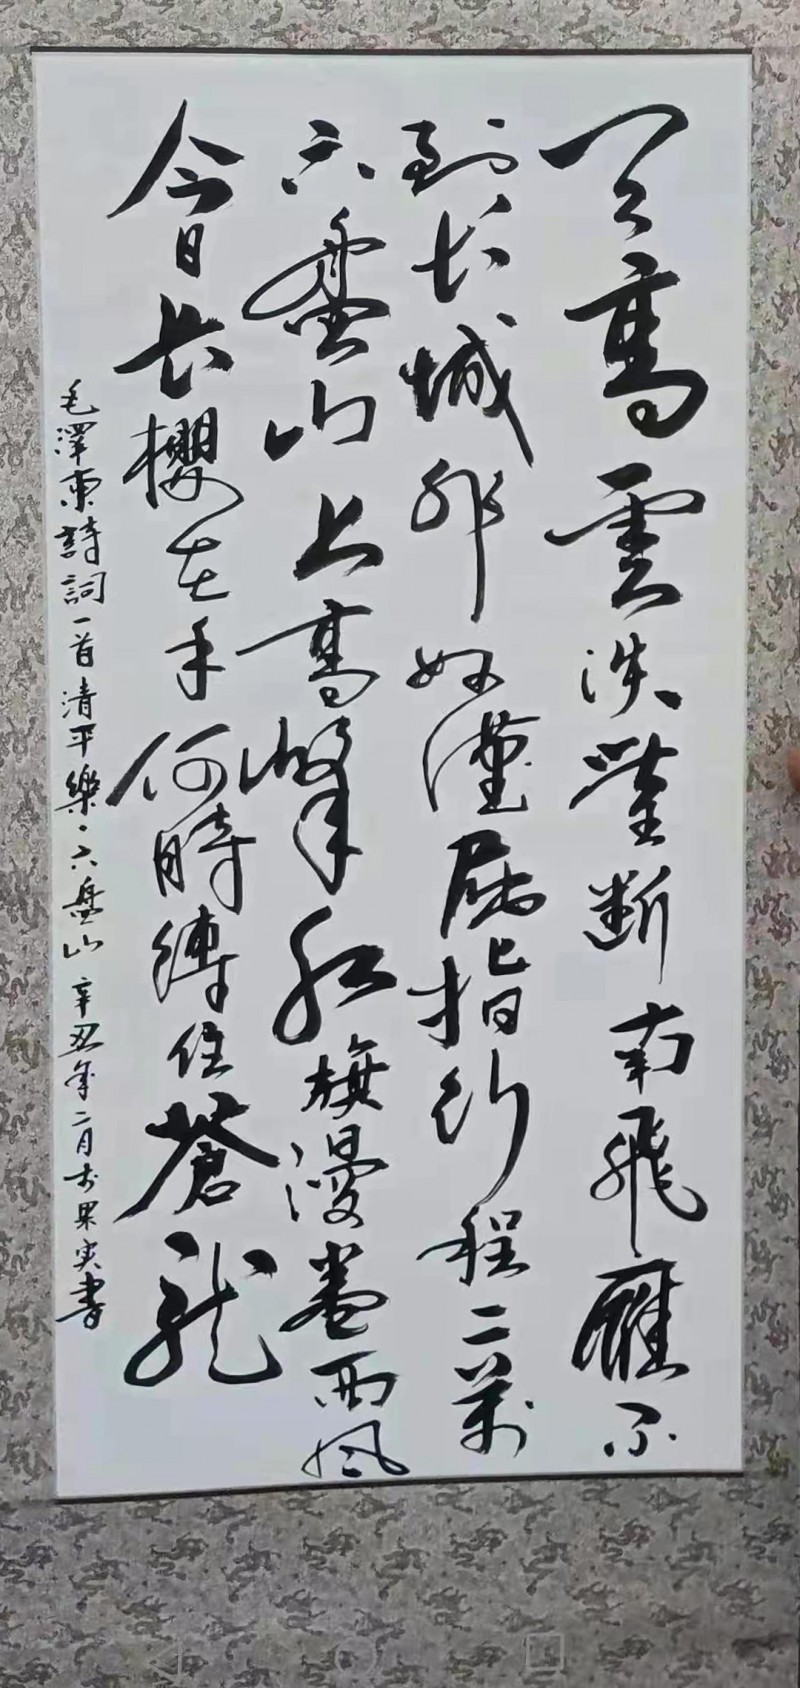 天高雲淡望斷南飛雁不
到长城非好漢屈指行程二萬
六盤山上高峰红旗漫卷西风
今日长櫻在手何時縛住蒼龙
毛澤東詩詞一首清平樂·六盤山 辛丑年二月於果実書